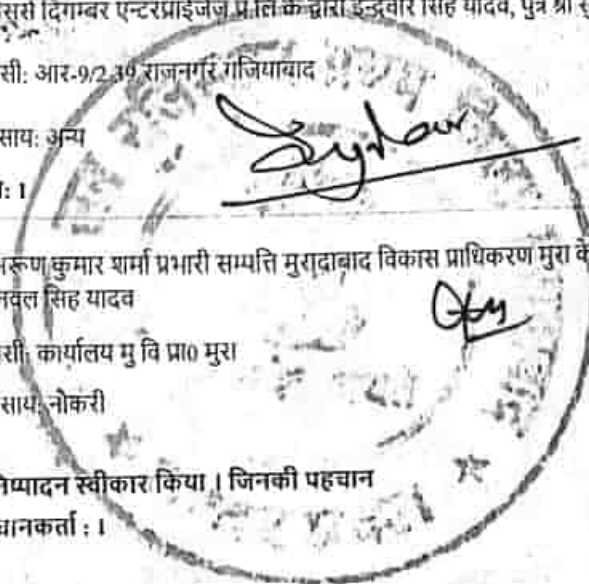 सर्स दिगम्बर एन्टरप्राईजेज प्रा लि के द्वारा इन्द्रवीर सिंह यादव, पुत्र श्री सु
सी: आर-9/2 39 राजनगर गजियाबाद
साय: अन्य
: 1
अरूण कुमार शर्मा प्रभारी सम्पत्ति मुरादाबाद विकास प्राधिकरण मुरा के
नवल सिंह यादव
सी: कार्यालय मु वि प्रा0 मुरा
साय: नोकरी
निष्पादन स्वीकार किया । जिनकी पहचान
चानकर्ता : 1